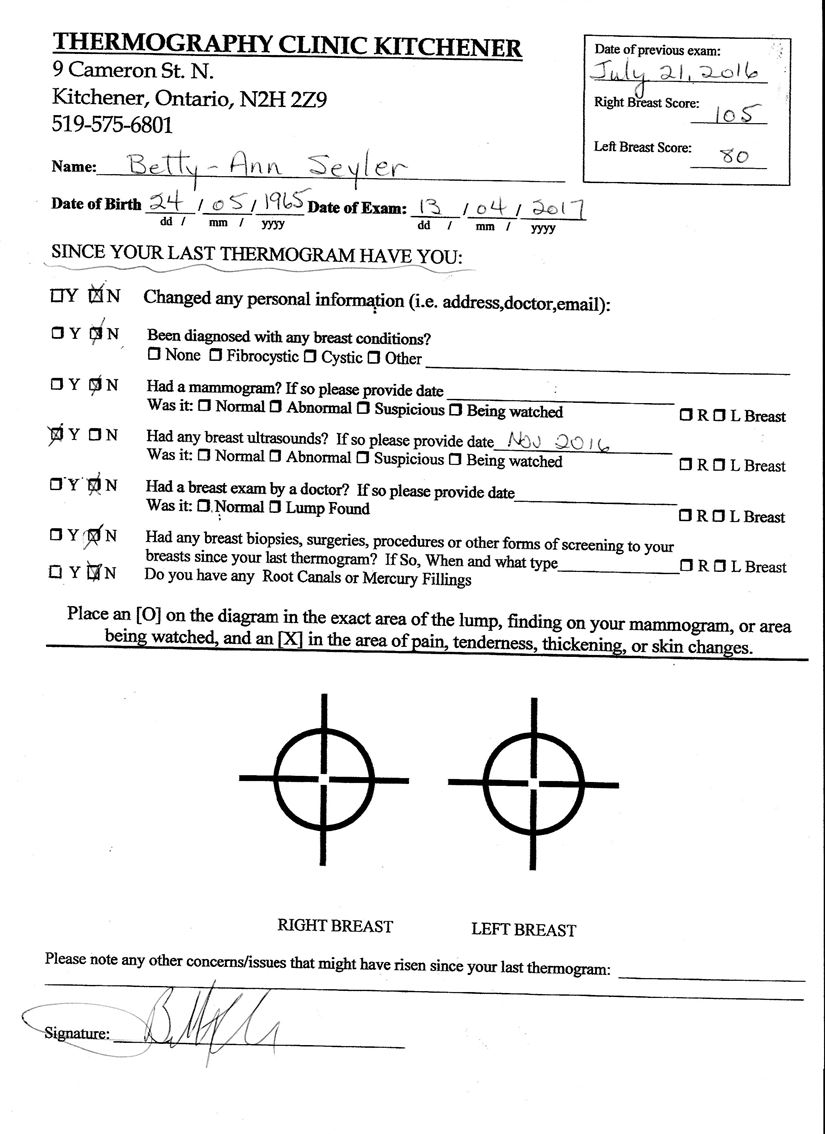 THERMOGRAPHY CLINIC KITCHENER
9 Cameron St. N.
Kitchener, Ontario, N2H 2Z9
519-575-6801
Date of previous exam:
July 21, 2016
Right Breast Score: 105
Left Breast Score: 80
Name: Betty-Ann Seyler
Date of Birth 24 / 05 / 1965 Date of Exam: 13 / 04 / 2017
dd / mm / yyyy dd / mm / yyyy
SINCE YOUR LAST THERMOGRAM HAVE YOU:
☐Y ☒N Changed any personal information (i.e. address,doctor,email):
☐ Y ☒ N Been diagnosed with any breast conditions?
☐ None ☐ Fibrocystic ☐ Cystic ☐ Other
☐ Y ☒ N Had a mammogram? If so please provide date
Was it: ☐ Normal ☐ Abnormal ☐ Suspicious ☐ Being watched ☐ R ☐ L Breast
☒ Y ☐ N Had any breast ultrasounds? If so please provide date Nov 2016
Was it: ☐ Normal ☐ Abnormal ☐ Suspicious ☐ Being watched ☐ R ☐ L Breast
☐ Y ☒ N Had a breast exam by a doctor? If so please provide date
Was it: ☐ Normal ☐ Lump Found ☐ R ☐ L Breast
☐ Y ☒ N Had any breast biopsies, surgeries, procedures or other forms of screening to your
breasts since your last thermogram? If So, When and what type ☐ R ☐ L Breast
☐ Y ☒ N Do you have any Root Canals or Mercury Fillings
Place an [O] on the diagram in the exact area of the lump, finding on your mammogram, or area
being watched, and an [X] in the area of pain, tenderness, thickening, or skin changes.
RIGHT BREAST LEFT BREAST
Please note any other concerns/issues that might have risen since your last thermogram:
Signature: